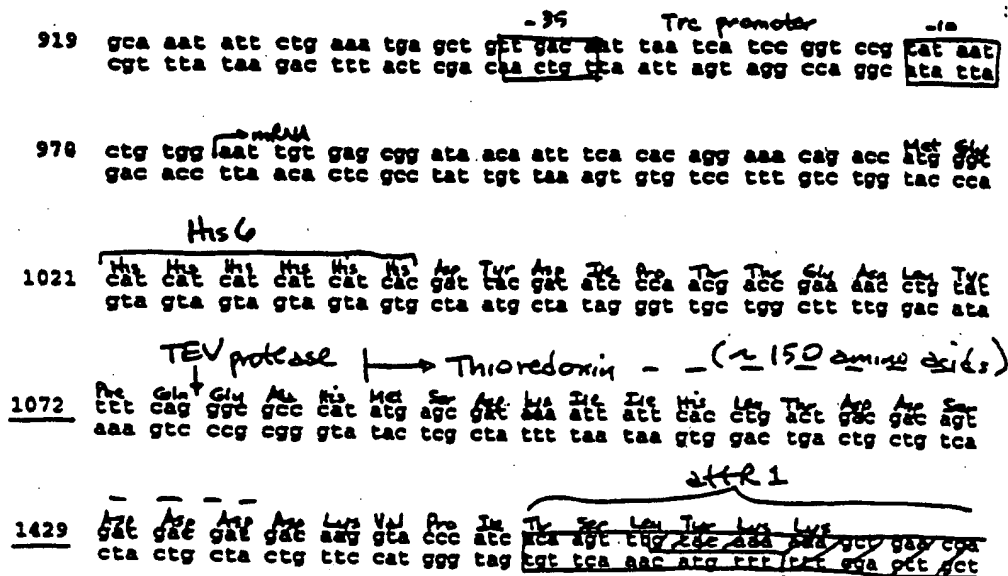 -35 Trc promoter -10
919 gca aat att ctg aaa tga gct gtt gac aat taa tca tcc ggt ccg tat aat
cgt tta taa gac ttt act cga caa ctg tta att agt agg cca ggc ata tta
mRNA Met Gly
970 ctg tgg aat tgt gag cgg ata aca att tca cac agg aaa cag acc atg ggt
gac acc tta aca ctc gcc tat tgt taa agt gtg tcc ttt gtc tgg tac cca
His 6
His His His His His His Asp Tyr Asp Ile Pro Thr Thr Gly Asn Leu Tyr
1021 cat cat cat cat cat cac gat tac gat atc cca acg acc gaa aac ctg tat
gta gta gta gta gta gtg cta atg cta tag ggt tgc tgg ctt ttg gac ata
TEV protease Thioredoxin - - (~ 150 amino acids)
Phe Gln Gly Ala His Met Ser Asp Lys Ile Ile His Leu Thr Asp Asp Ser
1072 ttt cag ggc gcc cat atg agc gat aaa att att cac ctg act gac gac agt
aaa gtc ccg cgg gta tac tcg cta ttt taa taa gtg gac tga ctg ctg tca
attR1
Asp Asp Asp Asp Lys Val Pro Ile Thr Ser Leu Tyr Lys Lys
1429 gat gac gat gac aag gta ccc atc aca agt ttg tac aaa aaa gct gaa cga
cta ctg cta ctg ttc cat ggg tag tgt tca aac atg ttt ttt cga ctt gct